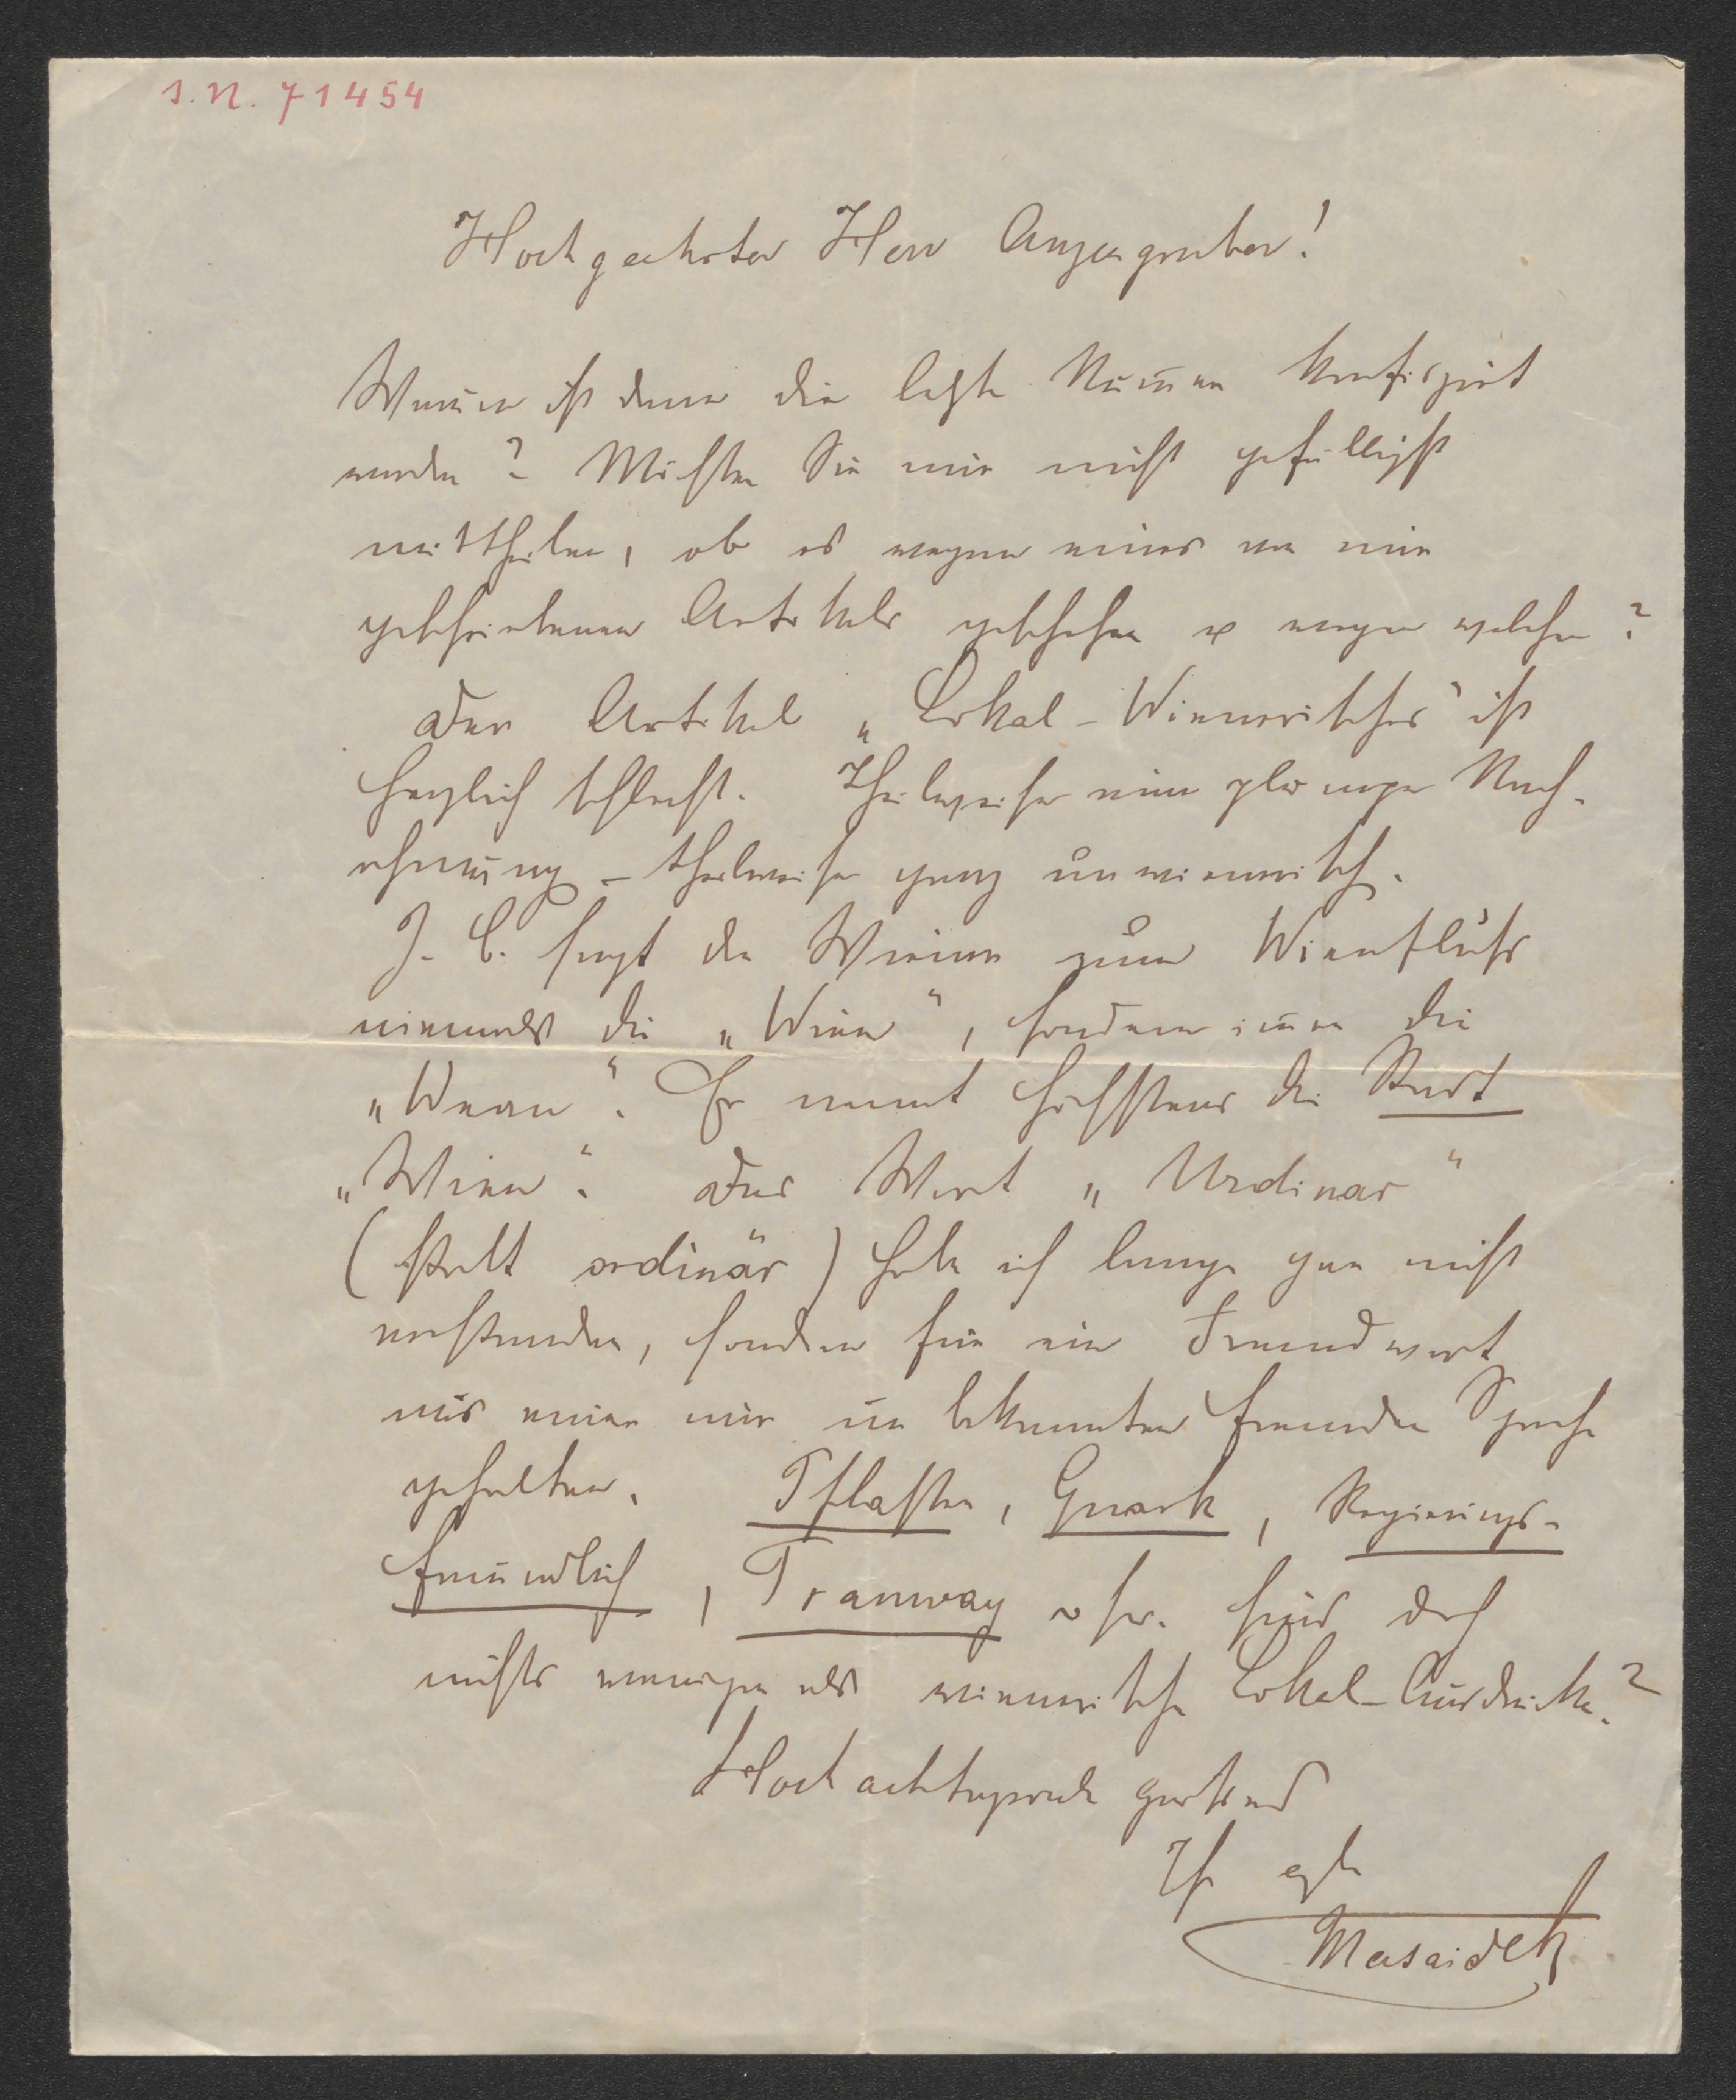 I.N. 71454
Hochgeehrter Herr Anzengruber!
Warum ist denn die letzte Num̅er konfiszirt
worden? Möchten Sie mir nicht gefälligst
mittheilen, ob es wegen eines von mir
geschriebenen Artikels geschehen u wegen welchen?
Der Artikel „Lokal-Wienerisches" ist
herzlich schlecht. Theilweise eine plumpe Nach-
ahmung – theilweise ganz unwienerisch.
Z. B. sagt der Wiener zum Wienfluß
niemals die „Wien", sondern im̅er die
„Wean". Er nennt höchstens die Stadt
„Wien". Das Wort „Urdinar"
(statt ordinär) habe ich lange gar nicht
verstanden, sondern für ein Fremdwort
aus einer mir unbekannten fremden Sprache
gehalten. Pflaster, Quark, Regierungs-
freundlich, Tramway usw. sind doch
nichts weniger als wienerische Lokal-Ausdrücke?
Hochachtungsvoll
Ihr erg
Masaidek